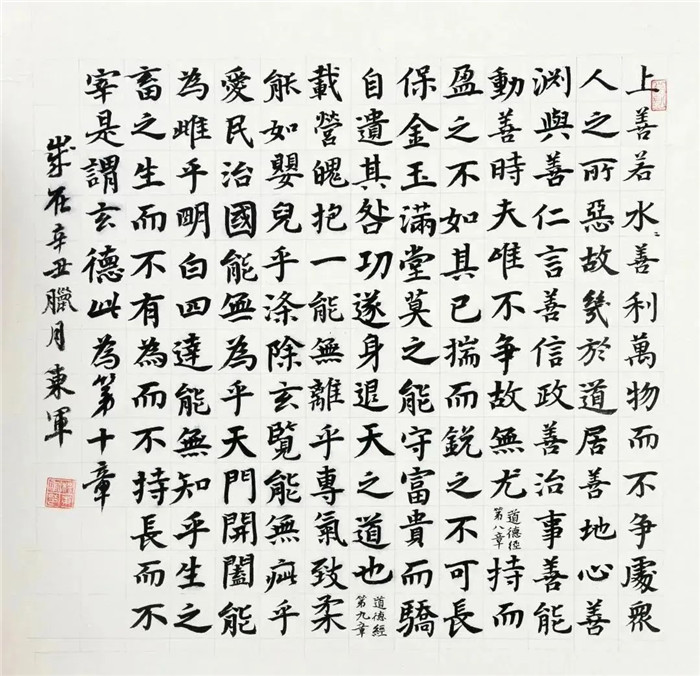 上善若水〻善利萬物而不争處眾
人之所惡故幾於道居善地心善
渊與善仁言善信政善治事善能
動善時夫唯不争故無尤道德經第八章持而
盈之不如其已揣而銳之不可長
保金玉滿堂莫之能守富貴而驕
自遺其咎功遂身退天之道也道德經第九章
載營魄抱一能無離乎專氣致柔
能如嬰兒乎涤除玄覽能無疵乎
愛民治國能無為乎天門開闔能
為雌乎明白四達能無知乎生之
畜之生而不有為而不持長而不
宰是謂玄德此為第十章
歲在辛丑臘月東軍